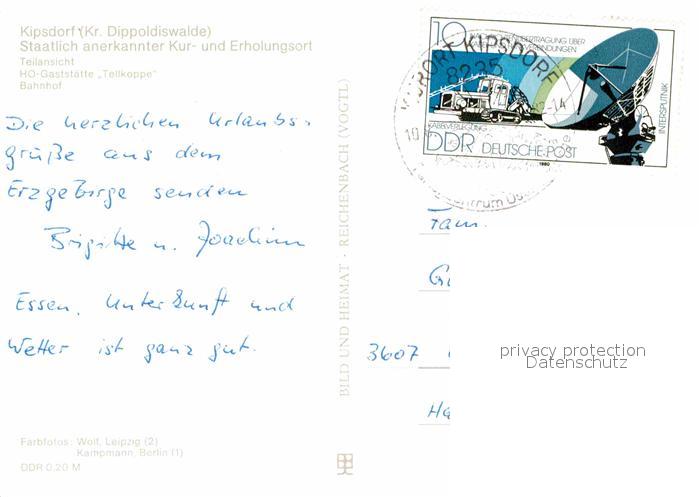 Kipsdorf (Kr. Dippoldiswalde)
Staatlich anerkannter Kur- und Erholungsort
Teilansicht
HO-Gaststätte „Tellkoppe“
Bahnhof
Die herzlichen Urlaubs-
grüße aus dem
Erzgebirge senden
Brigitte u. Joachim
Essen, Unterkunft und
Wetter ist ganz gut.
Farbfotos: Wolf, Leipzig (2)
Kampmann, Berlin (1)
DDR 0,20 M
BILD UND HEIMAT · REICHENBACH (VOGTL)
10
ÜBERTRAGUNG ÜBER
KURORT KIPSDORF
8235
INTERSPUTNIK
KABELVERLEGUNG
DDR DEUTSCHE POST
1980
Fam.
3607
Ha
privacy protection
Datenschutz